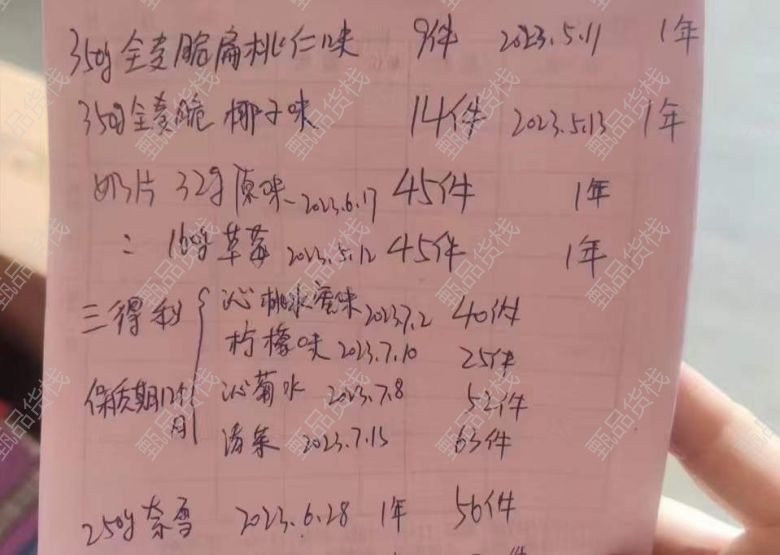 350g全麦脆扁桃仁味 9件 2023.5.11 1年
350g全麦脆 椰子味 14件 2023.5.13 1年
奶片 32g原味 2023.6.17 45件 1年
= 160g草莓 2023.5.12 45件 1年
三得利 沁桃水蜜味 2023.7.2 40件
柠檬味 2023.7.10 25件
保质期 沁菊水 2023.7.8 52件
月 清茶 2023.7.15 63件
250g奈雪 2023.6.28 1年 56件
甄品货栈